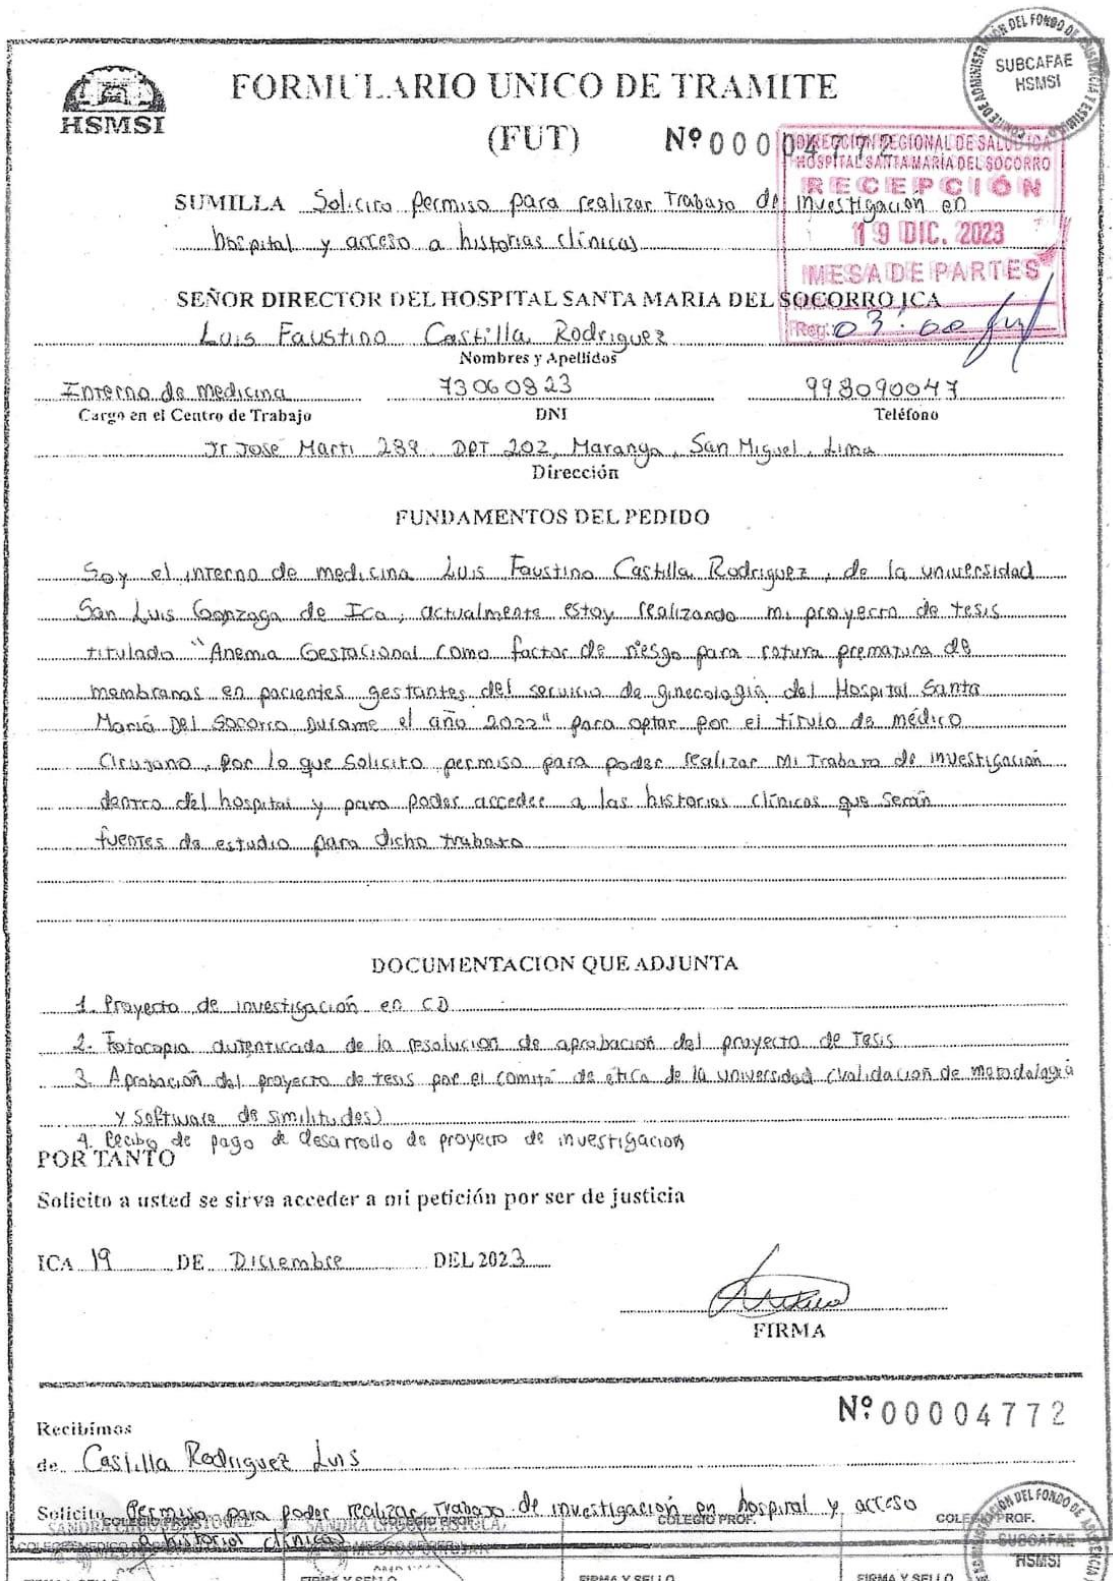 COMITE DE ADMINISTRACIÓN DEL FONDO DE ASISTENCIA Y ESTIMULO
SUBCAFAE
HSMSI
HSMSI
FORMULARIO UNICO DE TRAMITE
(FUT)
Nº 00004772
DIRECCION REGIONAL DE SALUD ICA
HOSPITAL SANTA MARIA DEL SOCORRO
RECEPCIÓN
19 DIC. 2023
MESA DE PARTES
Reg: 03:00
SUMILLA Solicito permiso para realizar Trabajo de investigación en
hospital y acceso a historias clínicas
SEÑOR DIRECTOR DEL HOSPITAL SANTA MARIA DEL SOCORRO ICA
Luis Faustino Castilla Rodriguez
Nombres y Apellidos
Interno de medicina 73060823 998090047
Cargo en el Centro de Trabajo DNI Teléfono
Jr José Marti 289. DPT 202, Maranga, San Miguel, Lima
Dirección
FUNDAMENTOS DEL PEDIDO
Soy el interno de medicina Luis Faustino Castilla Rodriguez, de la universidad
San Luis Gonzaga de Ica; actualmente estoy realizando mi proyecto de tesis
titulado "Anemia Gestacional como factor de riesgo para rotura prematura de
membranas en pacientes gestantes del servicio de ginecología del Hospital Santa
María Del Socorro Durante el año 2022" para optar por el título de médico
Cirujano, por lo que Solicito permiso para poder realizar mi Trabajo de investigación
dentro del hospital y para poder acceder a las historias clínicas que serán
fuentes de estudio para dicho trabajo
DOCUMENTACION QUE ADJUNTA
1. Proyecto de investigación en CD
2. Fotocopia autenticada de la resolución de aprobación del proyecto de Tesis
3. Aprobación del proyecto de tesis por el comité de ética de la universidad (validación de metodología
y software de similitudes)
4. Recibo de pago de desarrollo de proyecto de investigación
POR TANTO
Solicito a usted se sirva acceder a mi petición por ser de justicia
ICA 19 DE Diciembre DEL 2023
FIRMA
Nº 00004772
Recibimos
de Castilla Rodriguez Luis
Solicito Permiso para poder realizar Trabajo de investigación en hospital y acceso
a historial clínicas
COLEGIO PROF. COLEGIO PROF. COLEGIO PROF. COLEGIO PROF.
SUBCAFAE
HSMSI
FIRMA Y SELLO FIRMA Y SELLO FIRMA Y SELLO